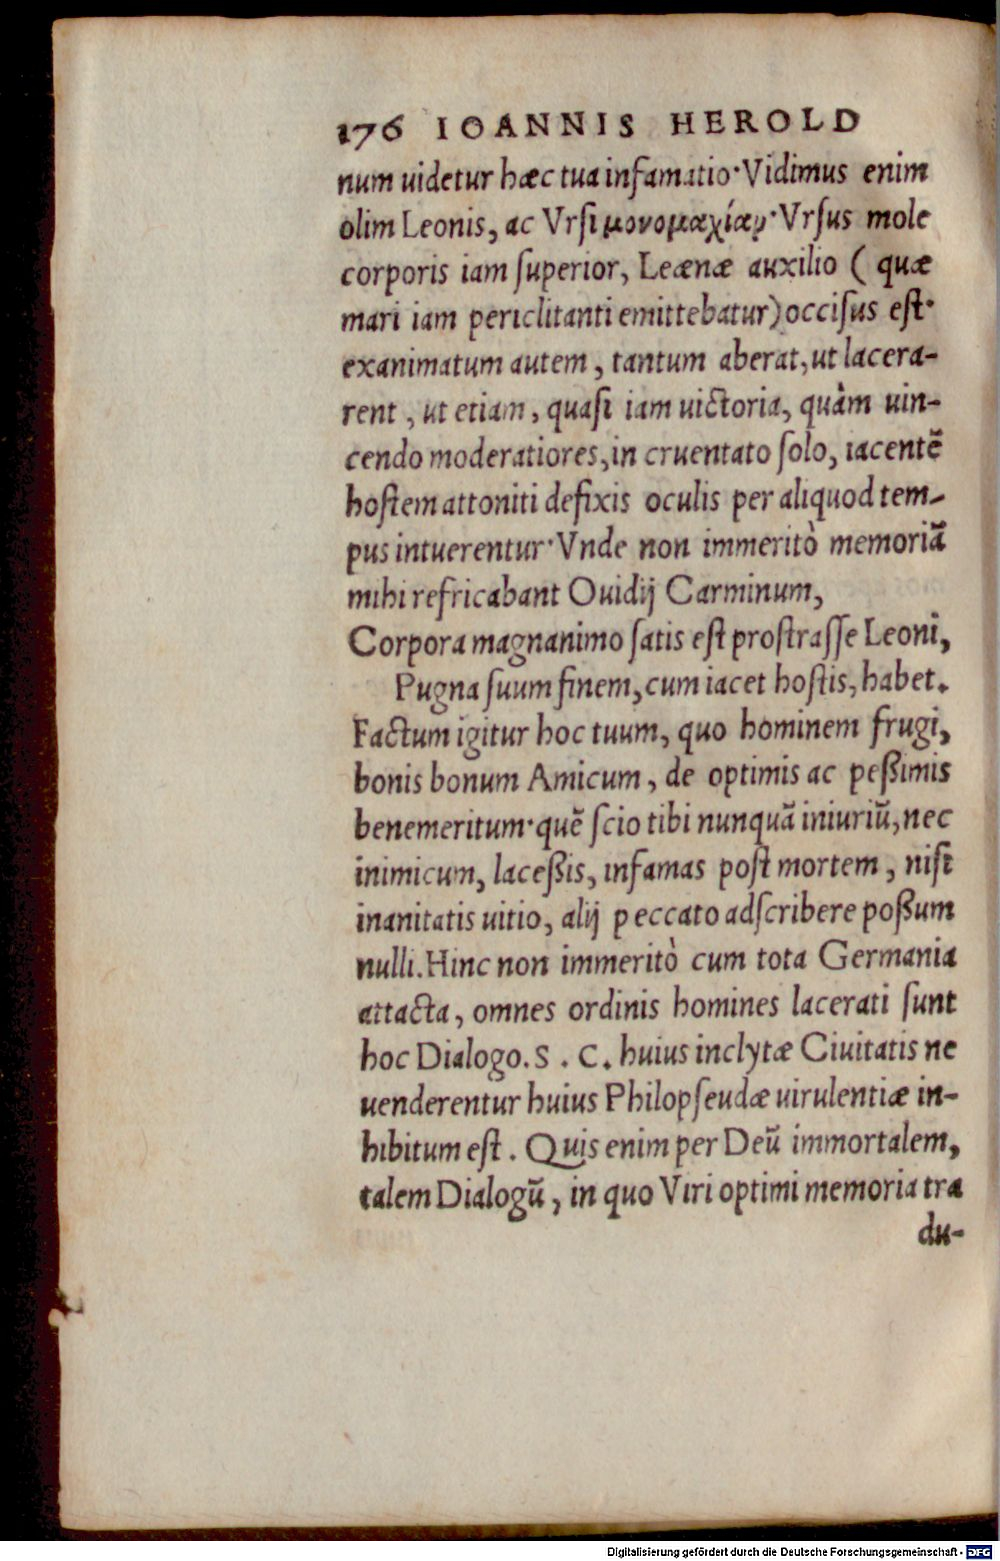 176 IOANNIS HEROLD
num uidetur hæc tua infamatio·Vidimus enim
olim Leonis, ac Vrſi μονομαχίαν·Vrſus mole
corporis iam ſuperior, Leænæ auxilio ( quæ
mari iam periclitanti emittebatur) occiſus eſt·
exanimatum autem, tantum aberat, ut lacera-
rent, ut etiam, quaſi iam uictoria, quàm uin-
cendo moderatiores, in cruentato ſolo, iacentē
hoſtem attoniti defixis oculis per aliquod tem-
pus intuerentur·Vnde non immeritò memoriā
mihi refricabant Ouidij Carminum,
Corpora magnanimo ſatis eſt proſtraſſe Leoni,
Pugna ſuum finem, cum iacet hoſtis, habet.
Factum igitur hoc tuum, quo hominem frugi,
bonis bonum Amicum, de optimis ac peßimis
benemeritum·quē ſcio tibi nunquā iniuriū, nec
inimicum, laceßis, infamas poſt mortem, niſi
inanitatis uitio, alij peccato adſcribere poßum
nulli. Hinc non immeritò cum tota Germania
attacta, omnes ordinis homines lacerati ſunt
hoc Dialogo. S. C. huius inclytæ Ciuitatis ne
uenderentur huius Philopſeudæ uirulentiæ in-
hibitum eſt. Quis enim per Deū immortalem,
talem Dialogū, in quo Viri optimi memoria tra
du-
Digitalisierung gefördert durch die Deutsche Forschungsgemeinschaft - DFG